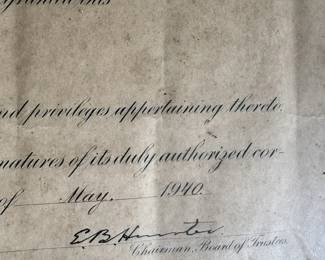 this
nd privileges appertaining thereto.
natures of its duly authorized cor-
of May, 1940.
E.B.
Chairman, Board of Trustees.